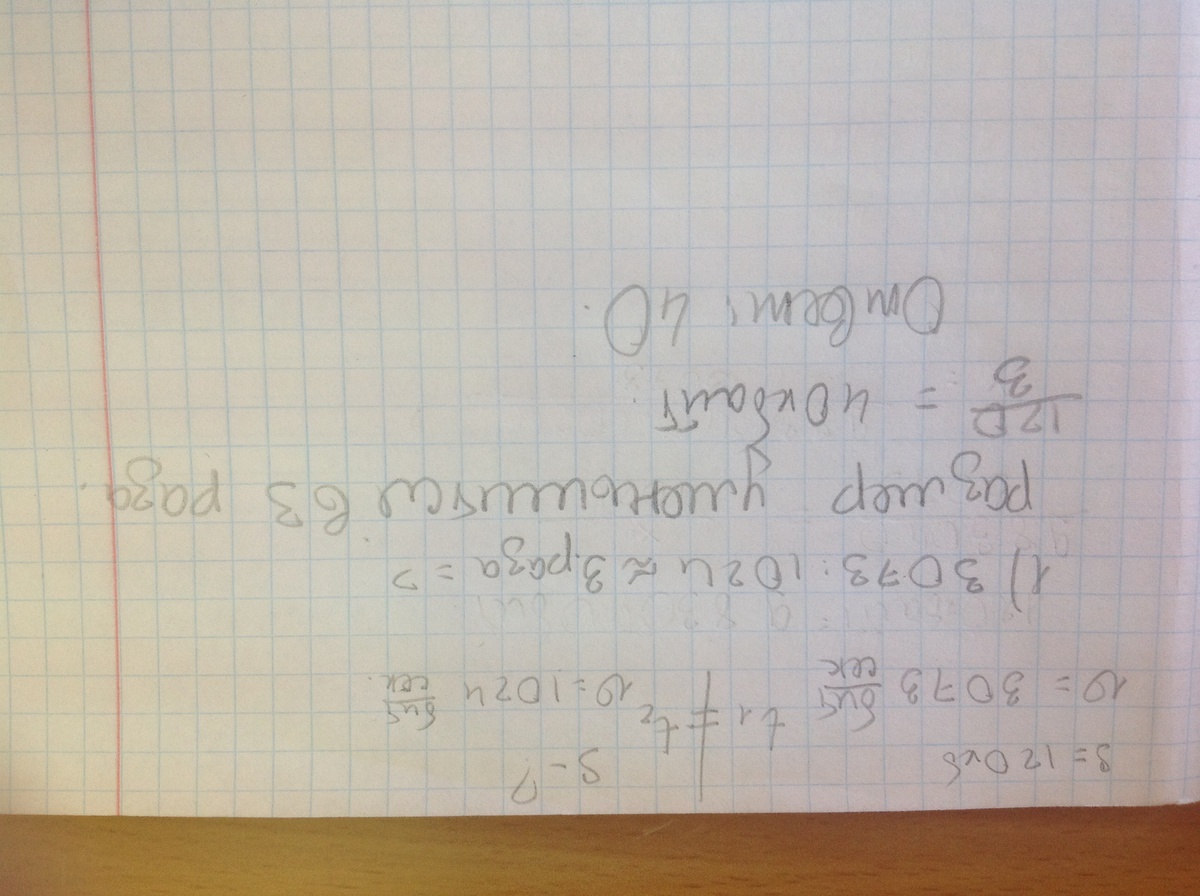 S = 120 кб S - ?
v = 3073 бит/сек t1 = t2 v = 1024 бит/сек.
1) 3073 : 1024 ≈ 3 раза => 
размер уменьшится в 3 раза.
120/3 = 40 кбайт
Ответ: 40.